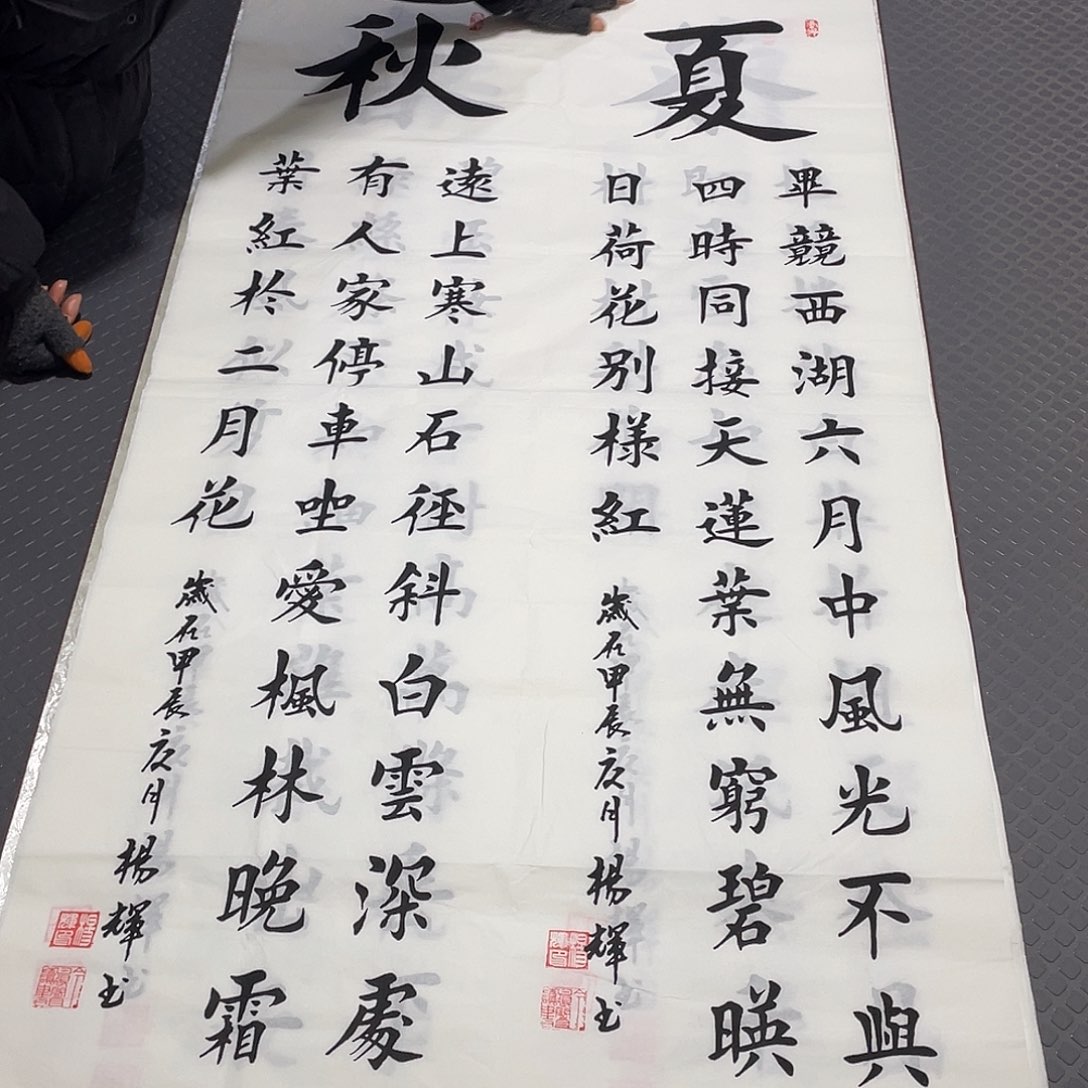 夏
畢競西湖六月中風光不與
四時同接天蓮葉無窮碧暎
日荷花別樣紅
歲在甲辰月楊輝书
秋
遠上寒山石徑斜白雲深處
有人家停車坐愛楓林晚霜
葉紅扵二月花
歲在甲辰月楊輝书